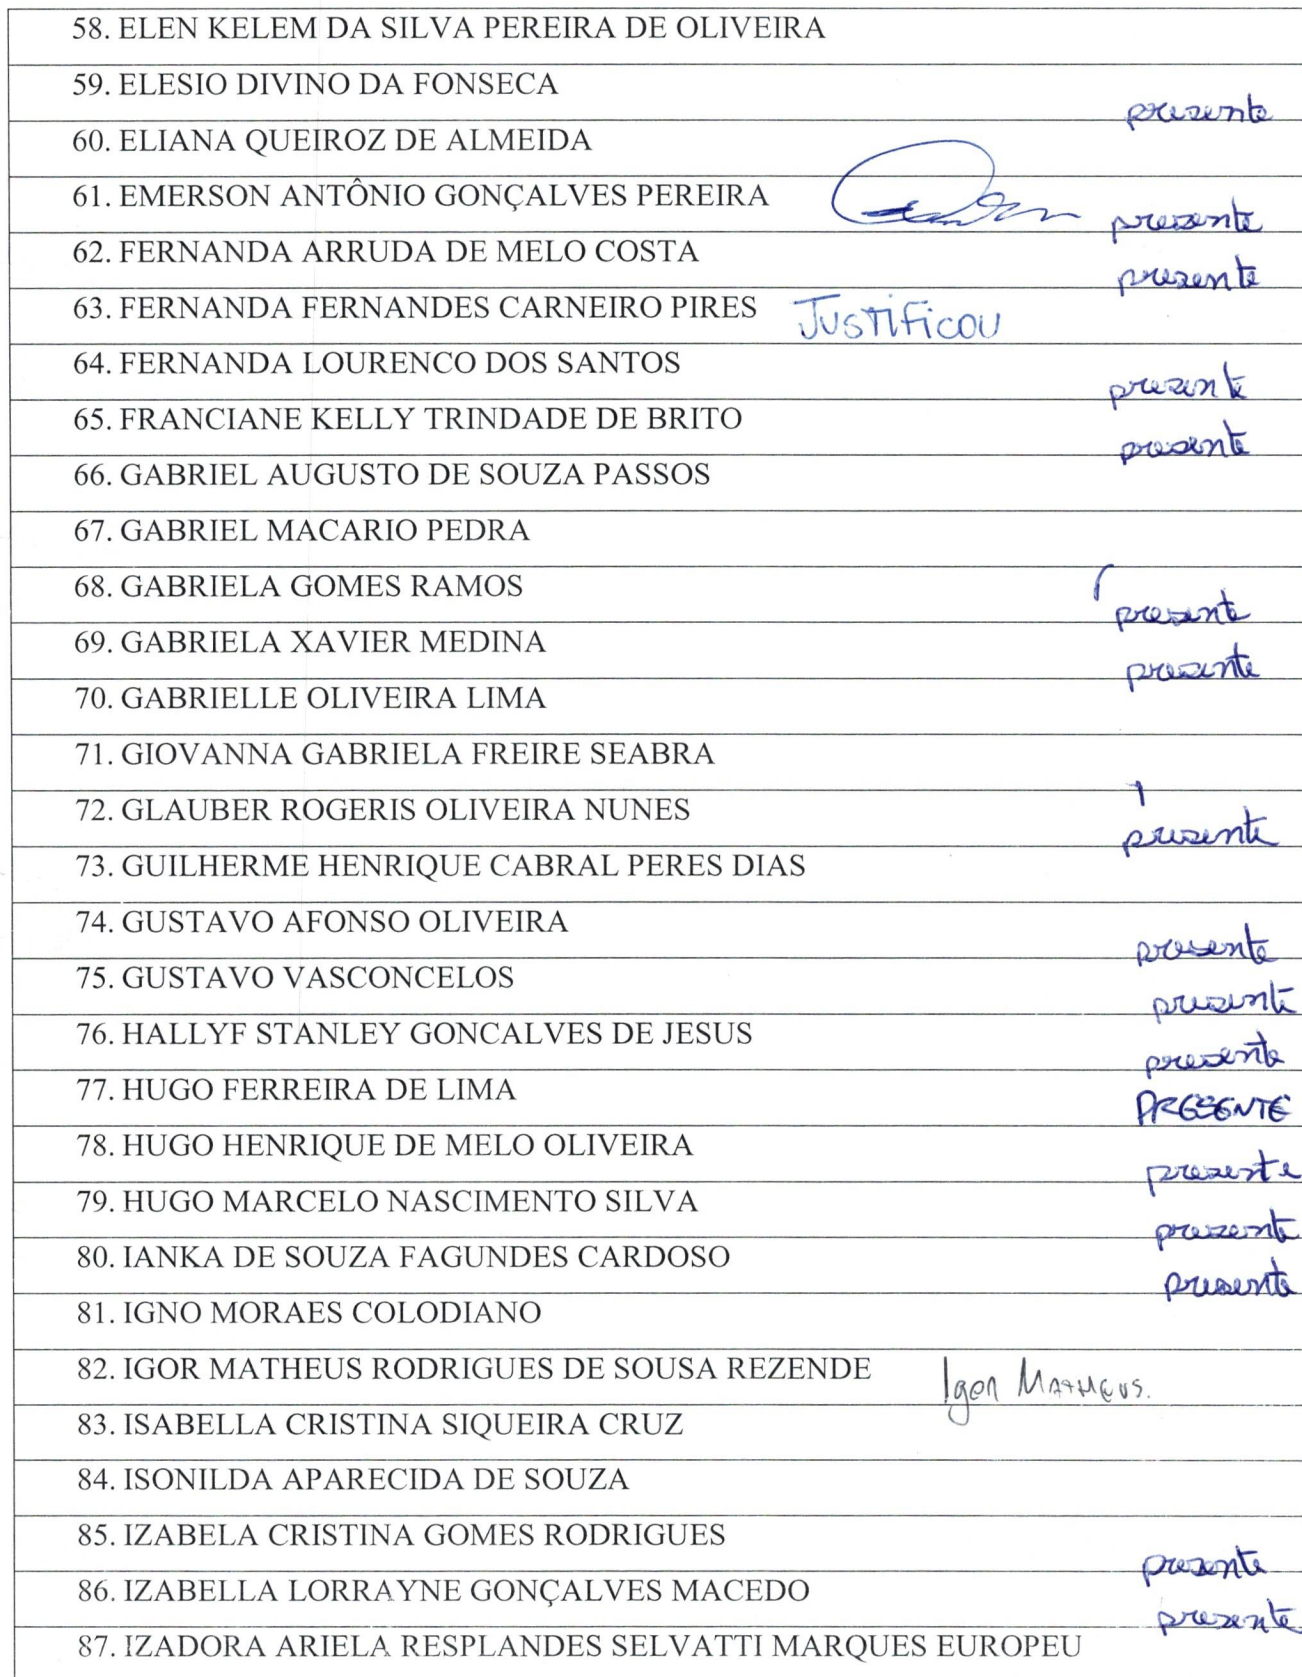 58. ELEN KELEM DA SILVA PEREIRA DE OLIVEIRA
59. ELESIO DIVINO DA FONSECA
presente
60. ELIANA QUEIROZ DE ALMEIDA
61. EMERSON ANTÔNIO GONÇALVES PEREIRA presente
62. FERNANDA ARRUDA DE MELO COSTA presente
63. FERNANDA FERNANDES CARNEIRO PIRES JUSTIFICOU
64. FERNANDA LOURENCO DOS SANTOS presente
65. FRANCIANE KELLY TRINDADE DE BRITO presente
66. GABRIEL AUGUSTO DE SOUZA PASSOS
67. GABRIEL MACARIO PEDRA
68. GABRIELA GOMES RAMOS presente
69. GABRIELA XAVIER MEDINA presente
70. GABRIELLE OLIVEIRA LIMA
71. GIOVANNA GABRIELA FREIRE SEABRA
72. GLAUBER ROGERIS OLIVEIRA NUNES presente
73. GUILHERME HENRIQUE CABRAL PERES DIAS
74. GUSTAVO AFONSO OLIVEIRA presente
75. GUSTAVO VASCONCELOS presente
76. HALLYF STANLEY GONCALVES DE JESUS presente
77. HUGO FERREIRA DE LIMA PRESENTE
78. HUGO HENRIQUE DE MELO OLIVEIRA presente
79. HUGO MARCELO NASCIMENTO SILVA presente
80. IANKA DE SOUZA FAGUNDES CARDOSO presente
81. IGNO MORAES COLODIANO
82. IGOR MATHEUS RODRIGUES DE SOUSA REZENDE Igor MATHEUS.
83. ISABELLA CRISTINA SIQUEIRA CRUZ
84. ISONILDA APARECIDA DE SOUZA
85. IZABELA CRISTINA GOMES RODRIGUES presente
86. IZABELLA LORRAYNE GONÇALVES MACEDO presente
87. IZADORA ARIELA RESPLANDES SELVATTI MARQUES EUROPEU